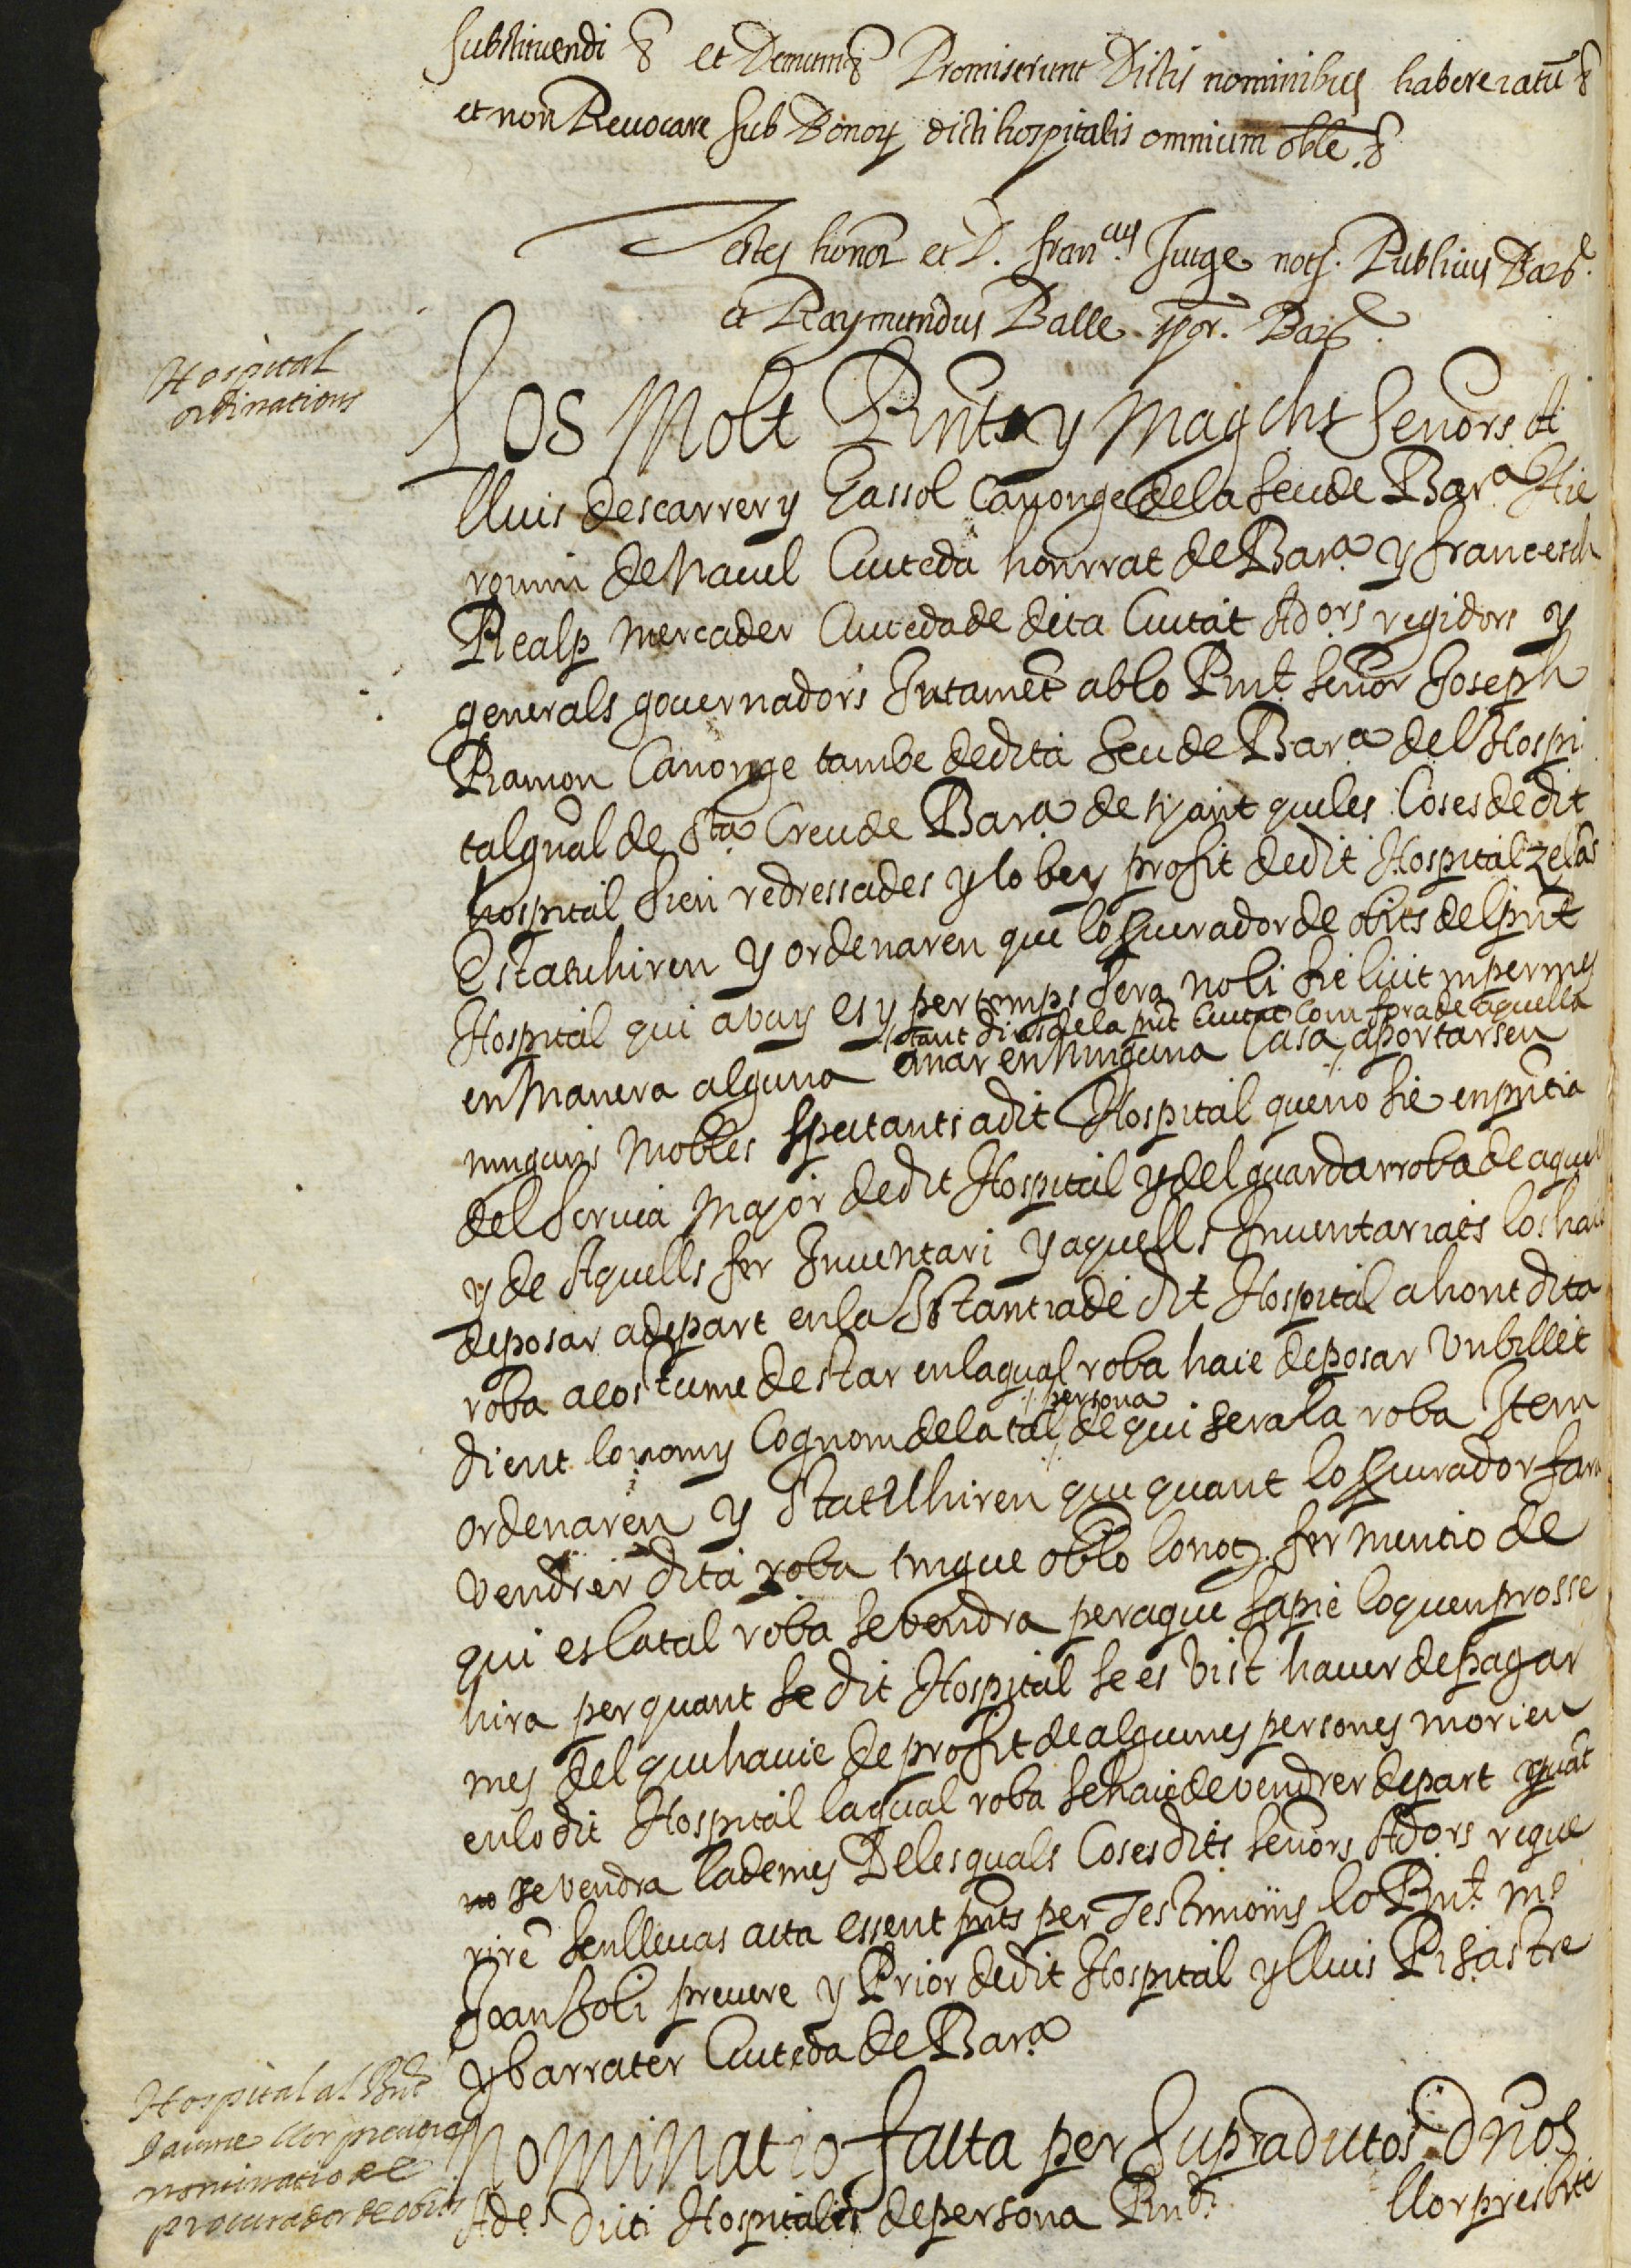 substituendi & et Demum & Promiserunt Dictis nominibus habere ratũ &
et non Revocare sub Bonoꝝ dicti hospitalis omnium obłe. &
Testes honor et D. franᶜᵘˢ Jutge notˢ. Publicus Barᵉ.
et Raymundus Balle ... Barᵉ.
Hospital
ordinations
Los Molt Rnts y Magchs senõrs
lluis descarrer y Gassol Canonge dela seu de Barᵃ Hie
ronim de Navel Ciuteda honrrat de Barᵃ y francesch
Realp mercader Ciuteda de dita Ciutat Adõrs regidors y
generals governadors Jutamẽt ab lo Rnt senõr Joseph
Ramon Canonge tambe de dita seu de Barᵃ del Hospi
tal gñal de Stᵃ Creu de Barᵃ de sijant que les Coses de dit
hospital sien redressades y lo bey profit de dit Hospital zelãs
Estatuhiren y ordenaren que lo ꝓcurador de obits del pñt
Hospital qui avuy es y per temps sera no li sie licit ni permes
/ tant dins dela pñt Ciutat Com fora de aquella
en manera alguna anar en ninguna Casa / aportarsen
ninguns mobles spectants a dit Hospital que no sie en pñtia
del servia major de dit Hospital y del guardarroba de aquell
y de Aquells fer Inventari y aquells Inventariats los haie
de posar a depart en la Stantia de dit Hospital ahont dita
roba acostume de star en la qual roba haie de posar Un billet
/ persona
dient lo nom y Cognom dela tal / de qui sera la roba Item
ordenaren y Statuhiren que quant lo ꝓcurador fara
vendrer dita roba tingue ab lo not. fer mencio de
qui es la tal roba se vendra peraque sapie lo quen prosse
hira per quant se dit Hospital se es Vist haver de pagar
mes del que havie de profit de algunes persones morien
en lo dit Hospital la qual roba se haie de vendrer de part quãt
no se vendra la demes De les quals Coses dits senõrs Adõrs reque
rirẽ senllevas acta essent pñts per Testimonis lo Rnt. mᵒ
Joan Soli prevere y Prior de dit Hospital y lluis Pisastre
y barrater Ciuteda de Barᵃ
Hospital al Rnt
Jaume llor prevere
nominatio de
procurador de obits
Nominatio facta per supradictos dños
Adeˢ dicti Hospitalis de persona Rndi. llor presbite